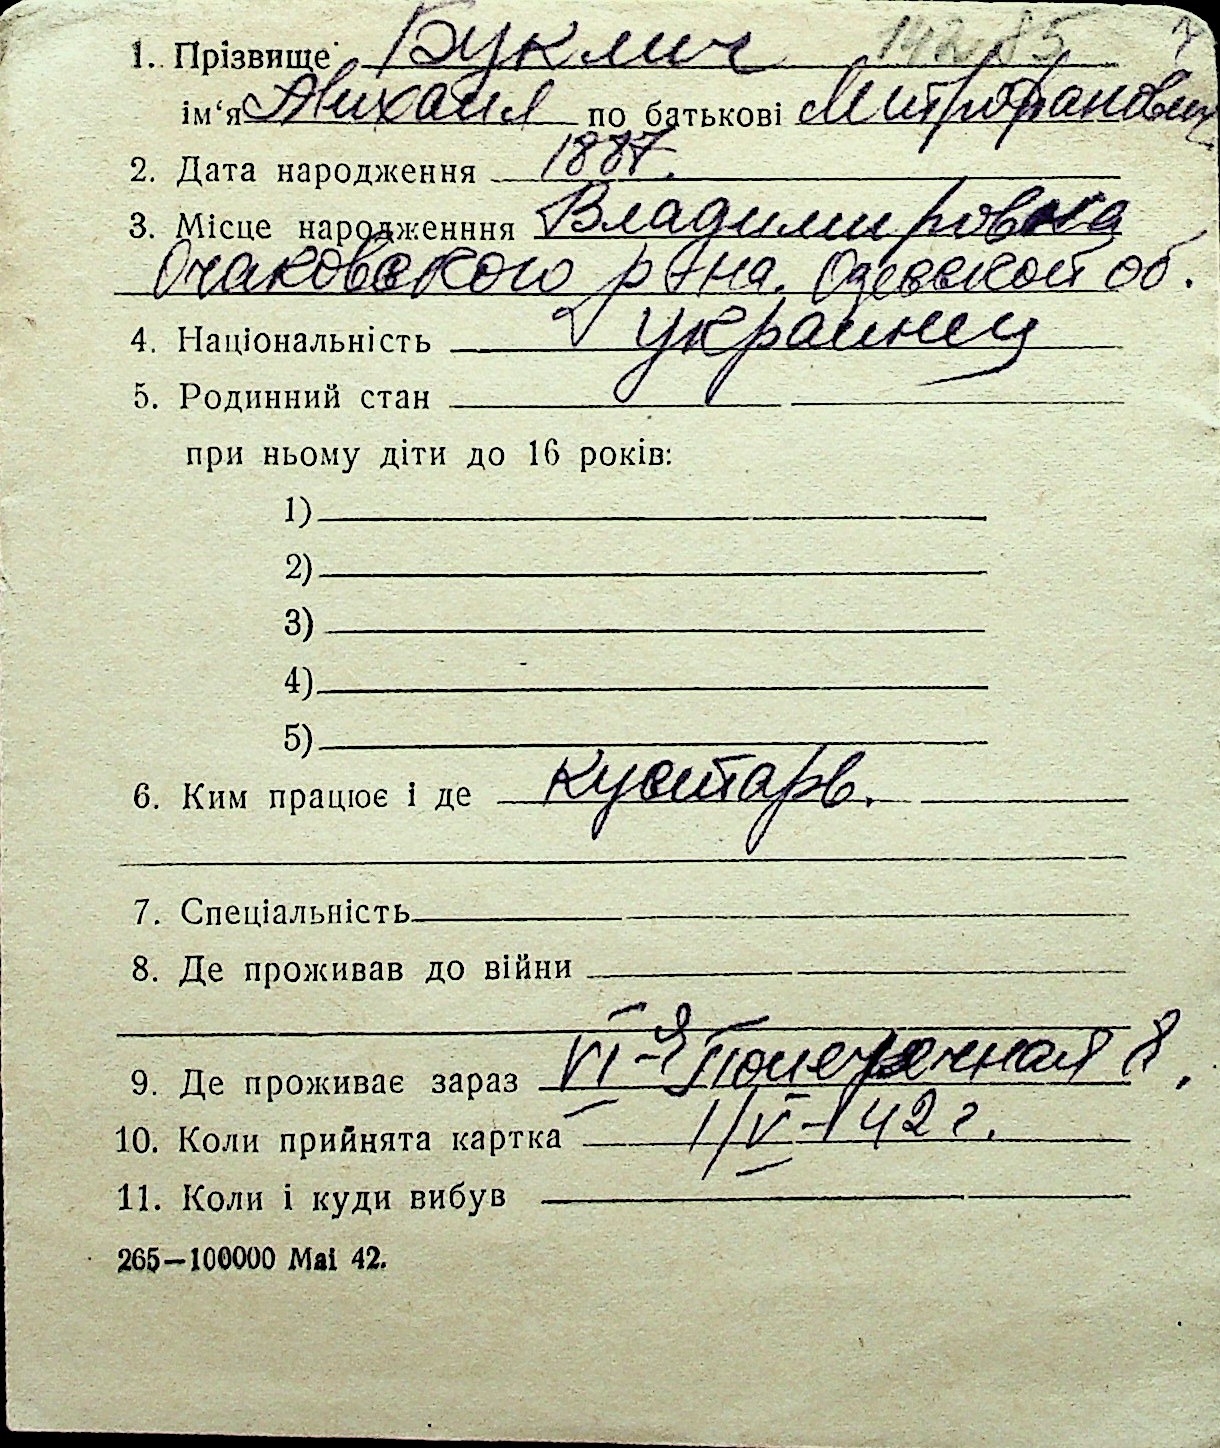 1. Прізвище Буклич 14285
ім‘я Михаил по батькові Митрофанович
2. Дата народження 1887.
3. Місце народженння Владимировка
Очаковского р-на. Одесской об.
4. Національність украинец
5. Родинний стан
при ньому діти до 16 років:
1)
2)
3)
4)
5)
6. Ким працює і де кустарь.
7. Спеціальність
8. Де проживав до війни
9. Де проживає зараз VI-я Поперечная 8.
10. Коли прийнята картка 1/V-42 г.
11. Коли і куди вибув
265—100000 Mai 42.